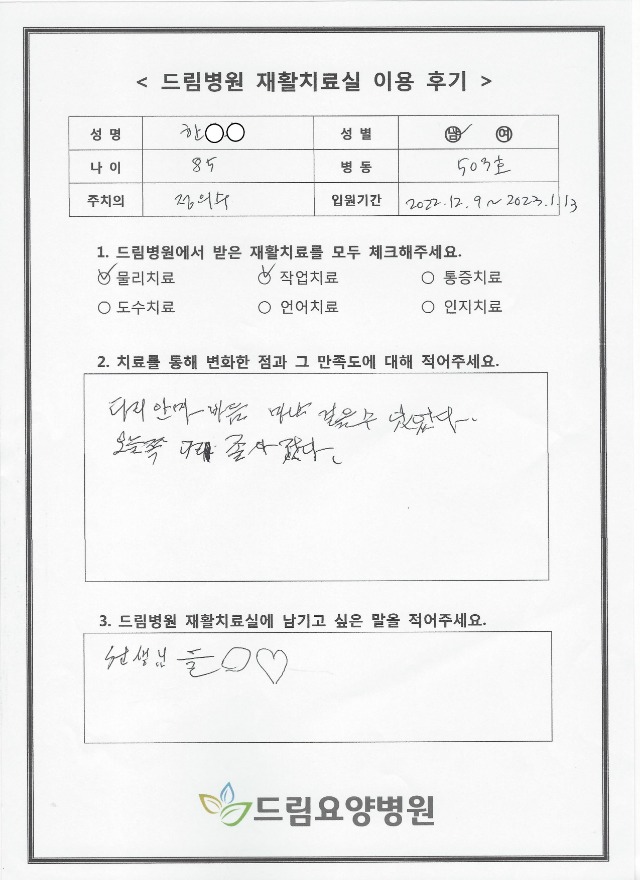 < 드림병원 재활치료실 이용 후기 >
성 명 한○○ 성 별 남 여
나 이 85 병 동 503호
주치의 입원기간 2022.12.9 ~ 2023.1.13
1. 드림병원에서 받은 재활치료를 모두 체크해주세요.
물리치료 작업치료 통증치료
도수치료 언어치료 인지치료
2. 치료를 통해 변화한 점과 그 만족도에 대해 적어주세요.
다리 걸을수
다리
3. 드림병원 재활치료실에 남기고 싶은 말을 적어주세요.
선생님 들 ♡
드림요양병원